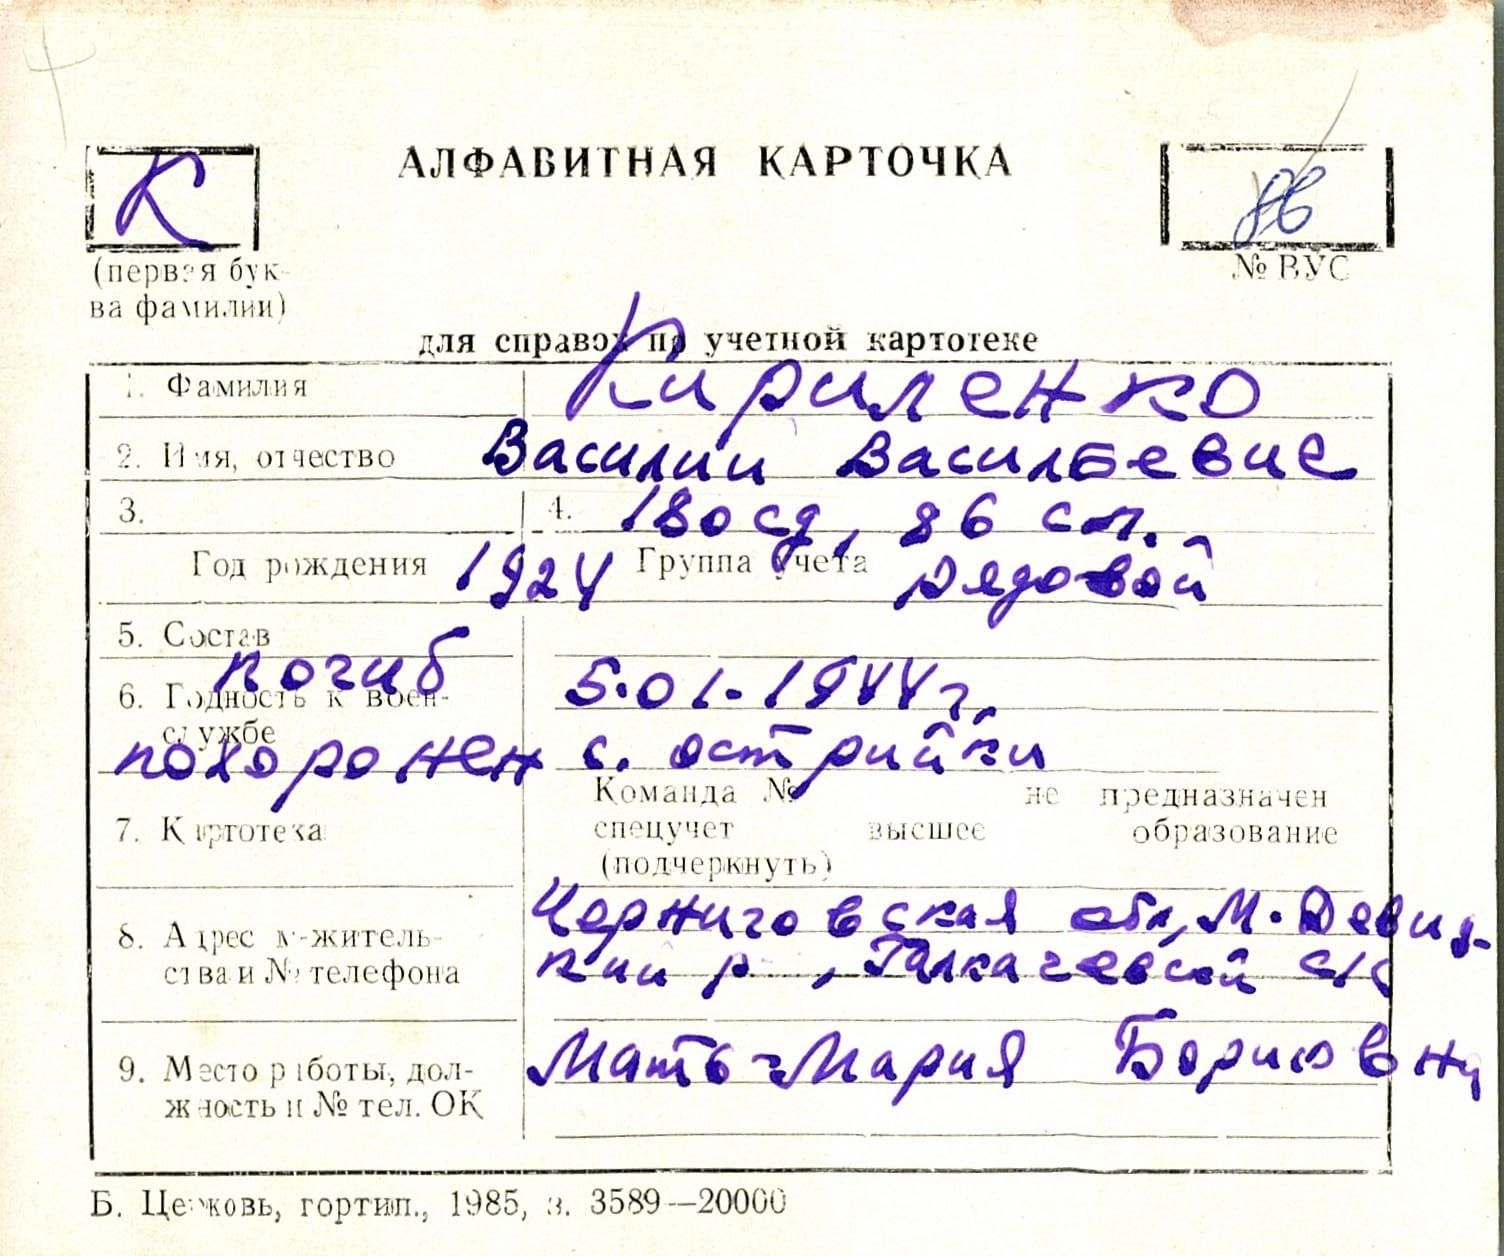 К
АЛФАВИТНАЯ КАРТОЧКА
86
(первая бук-
ва фамилии)
№ ВУС
для справок по учетной картотеке
1. Фамилия Кириленко
2. Имя, отчество Василий Васильевич
3. 4. 180 сд, 86 сп.
Год рождения 1924 Группа учета рядовой
5. Состав
погиб 5.01.1944 г.
6. Годность к воен-
службе
похоронен с. Острийки
Команда № не предназначен
7. Картотека спецучет высшее образование
(подчеркнуть)
Черниговская обл, М. Девиц-
8. Адрес м-житель-
ства и № телефона кий р , Галкачевский с/с
9. Место работы, дол- Мать Мария Борисовн
жность и № тел. ОК
Б. Церковь, гортип., 1985, з. 3589—20000